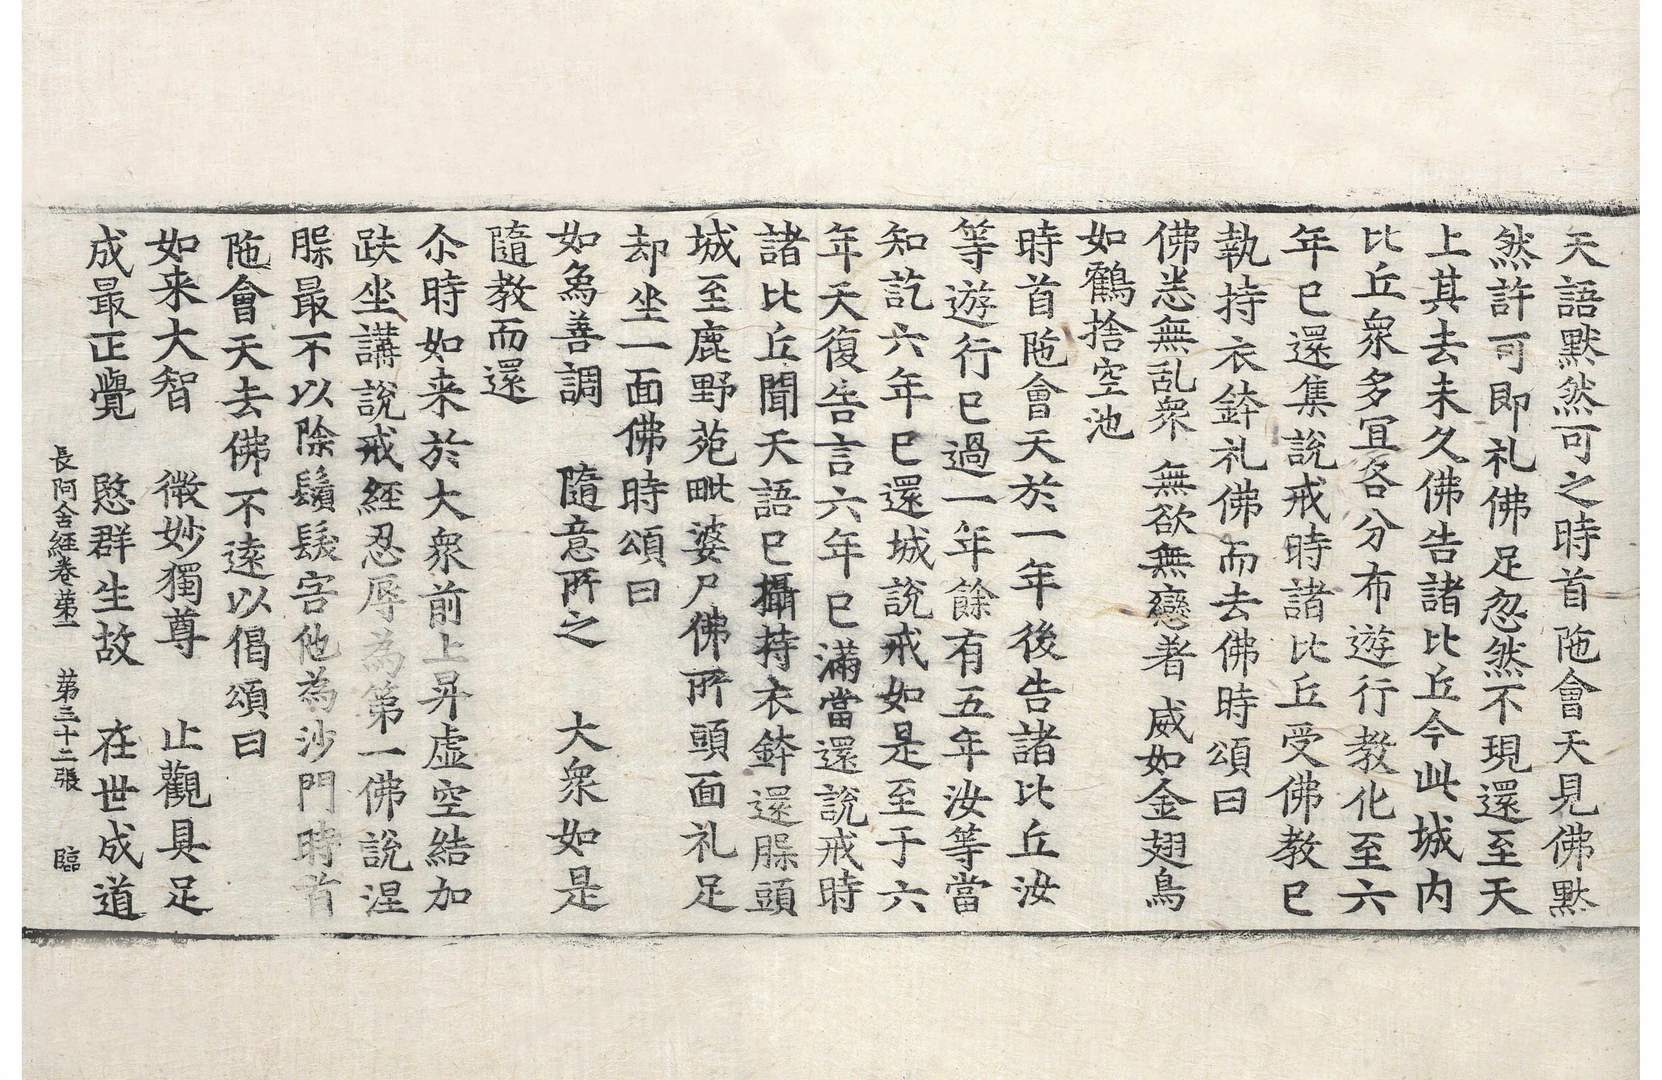 天語黙然可之時首陁會天見佛黙
然許可即礼佛足忽然不現還至天
上其去未久佛告諸比丘今此城内
比丘衆多冝各分布遊行教化至六
年已還集說戒時諸比丘受佛教已
執持衣鉢礼佛而去佛時頌曰
佛恙無乱衆 無欲無戀著 威如金翅鳥
如鶴捨空池
時首陁會天於一年後告諸比丘汝
等遊行已過一年餘有五年汝等當
知訖六年已還城說戒如是至于六
年天復告言六年已滿當還說戒時
諸比丘聞天語已攝持衣鉢還槃頭
城至鹿野苑毗婆尸佛所頭面礼足
却坐一面佛時頌曰
如象善調 隨意所之 大衆如是
隨教而還
尒時如来於大衆前上昇虚空結加
趺坐講說戒經忍辱為第一佛說涅
槃最不以除鬚髮害他為沙門時首
陁會天去佛不遠以偈頌曰
如来大智 微妙獨尊 止觀具足
成最正覺 愍群生故 在世成道
長阿含經卷苐一 苐三十二張 臨